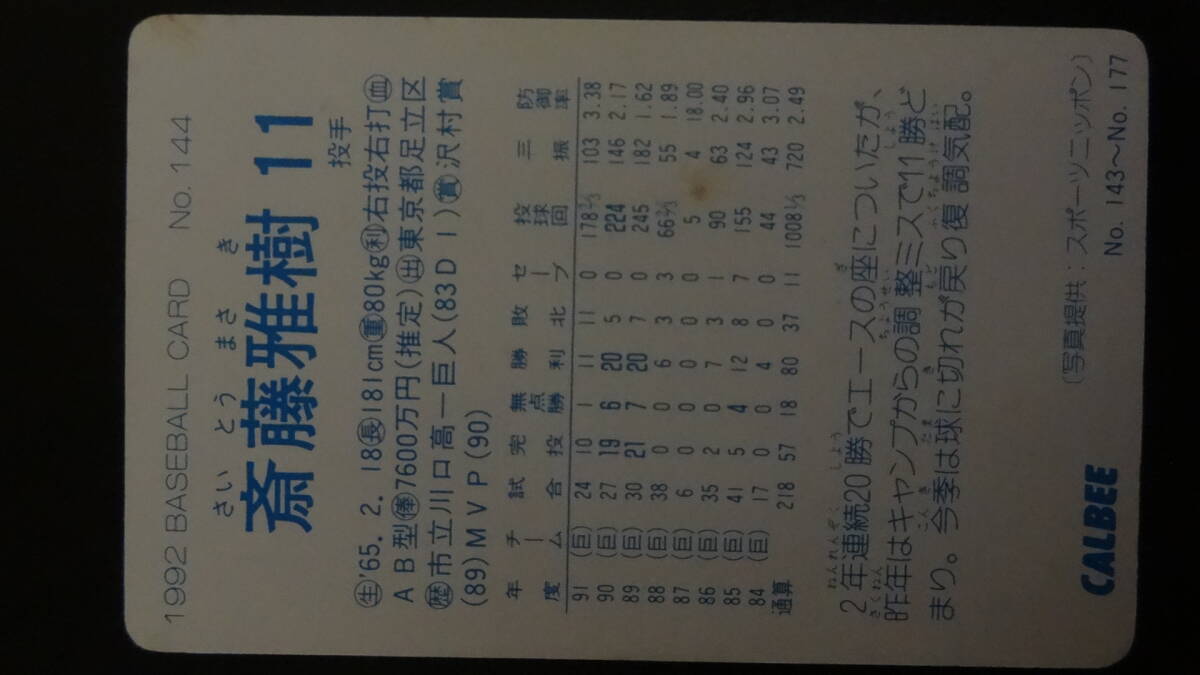 1992 BASEBALL CARD　No. 144
さい とう まさ き
斎藤雅樹 11
投手
㊤'65. 2. 18㊐181cm㊥80kg㊒右投右打㊊
ＡＢ型㊌7600万円(推定)㊍東京都足立区
㊎市立川口高ー巨人(83D 1)㊏沢村賞
(89)ＭＶＰ(90)
年度 チーム 試合 完投 無点勝 勝利 敗北 セーブ 投球回 三振 防御率
91 (巨) 24 10 1 11 11 0 178⅔ 103 3.38
90 (巨) 27 19 6 20 5 0 224 146 2.17
89 (巨) 30 21 7 20 7 0 245 182 1.62
88 (巨) 38 0 0 6 3 3 66⅔ 55 1.89
87 (巨) 6 0 0 0 0 0 5 4 18.00
86 (巨) 35 2 0 7 3 1 90 63 2.40
85 (巨) 41 5 4 12 8 7 155 124 2.96
84 (巨) 17 0 0 4 0 0 44 43 3.07
通算 218 57 18 80 37 11 1008⅓ 720 2.49
ねんれんぞく しょう ざ
２年連続20勝でエースの座についたが、
さくねん ちょうせい しょう
昨年はキャンプからの調整ミスで11勝ど
こんき たま き もど ふくちょうけはい
まり。今季は球に切れが戻り復調気配。
(写真提供：スポーツニッポン)
CALBEE
No. 143〜No. 177